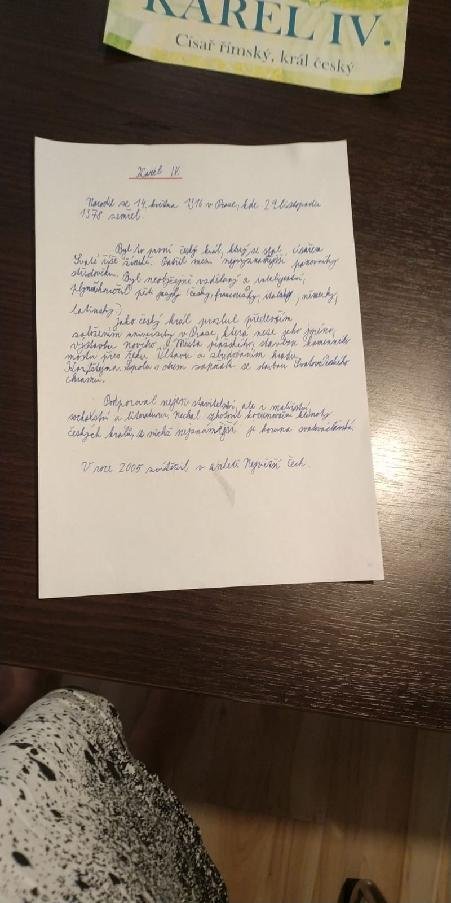 KAREL IV.
Císař římský, král český
Karel IV.
Narodil se 14. května 1316 v Praze, kde 29. listopadu
1378 zemřel.
Byl to první český král, který se stal císařem
Svaté říše římské. Patřil mezi nejvýznamnější panovníky
středověku. Byl neobyčejně vzdělaný a inteligentní,
plynně hovořil pěti jazyky (česky, francouzsky, italsky, německy,
latinsky).
Jako český král proslul především
založením univerzity v Praze, která nese jeho jméno,
výstavbou Nového Města pražského, stavbou kamenného
mostu přes řeku Vltavu a hradu
Karlštejna. Spolu s otcem zahájil stavbu Svatovítského
chrámu.
Podporoval nejen stavitelství, ale i malířství,
sochařství a literaturu. Nechal zhotovit korunovační klenoty
českých králů, z nichž nejznámější je koruna svatováclavská.
V roce 2005 zvítězil v anketě Největší Čech.